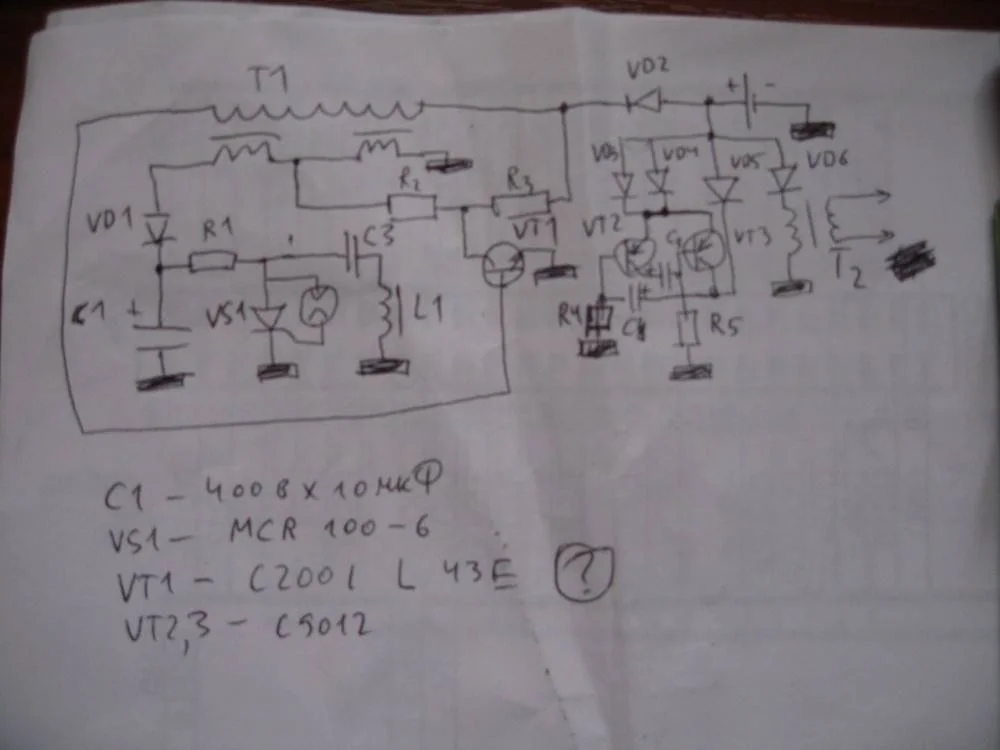 T1
VD2
+ -
VD3 VD4 VD5 VD6
R2 R3
VD1 R1 C3 VT1 VT2 VT3
T2
C1 + VS1 L1
R4 C4 R5
C1 - 400В х 10мкФ
VS1 - MCR 100-6
VT1 - C2001 L 43E ?
VT2,3 - C9012